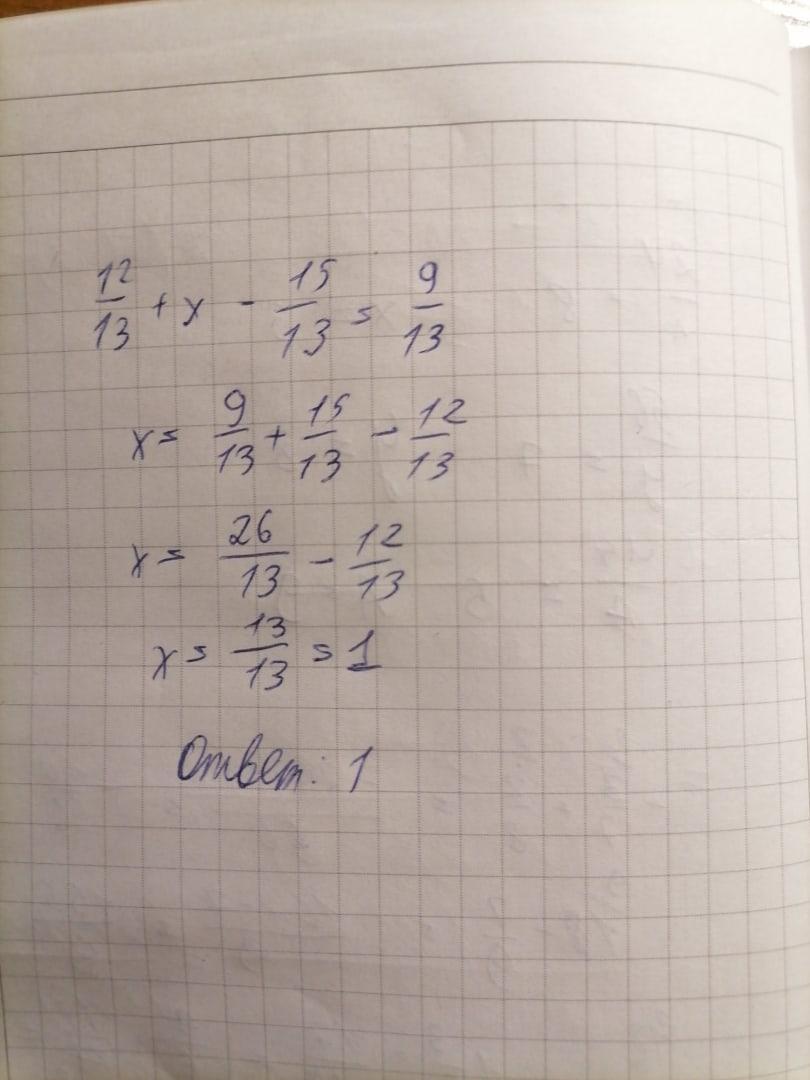 12/13 + x - 15/13 = 9/13
x = 9/13 + 15/13 - 12/13
x = 26/13 - 12/13
x = 13/13 = 1
Ответ: 1